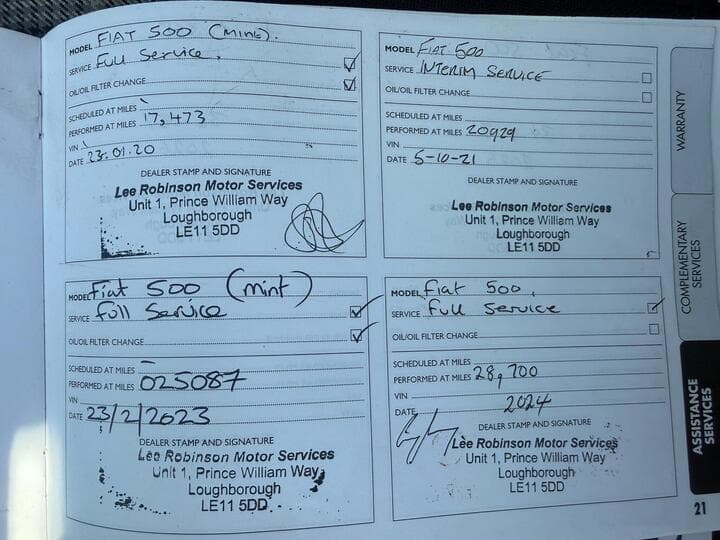 MODEL FIAT 500 (MINT).
SERVICE Full Service.
OIL/OIL FILTER CHANGE
SCHEDULED AT MILES
PERFORMED AT MILES 17,473
VIN
DATE 23.01.20
DEALER STAMP AND SIGNATURE
Lee Robinson Motor Services
Unit 1, Prince William Way
Loughborough
LE11 5DD
MODEL FIAT 500
SERVICE INTERIM SERVICE
OIL/OIL FILTER CHANGE
SCHEDULED AT MILES
PERFORMED AT MILES 20929
VIN
DATE 5-10-21
DEALER STAMP AND SIGNATURE
Lee Robinson Motor Services
Unit 1, Prince William Way
Loughborough
LE11 5DD
MODEL Fiat 500 (mint)
SERVICE full Service
OIL/OIL FILTER CHANGE
SCHEDULED AT MILES –
PERFORMED AT MILES 025087
VIN
DATE 23/2/2023
DEALER STAMP AND SIGNATURE
Lee Robinson Motor Services
Unit 1, Prince William Way
Loughborough
LE11 5DD
MODEL Fiat 500.
SERVICE Full Service
OIL/OIL FILTER CHANGE
SCHEDULED AT MILES
PERFORMED AT MILES 28,700
VIN
DATE 2024
DEALER STAMP AND SIGNATURE
Lee Robinson Motor Services
Unit 1, Prince William Way
Loughborough
LE11 5DD
WARRANTY
COMPLEMENTARY
SERVICES
ASSISTANCE
SERVICES
21